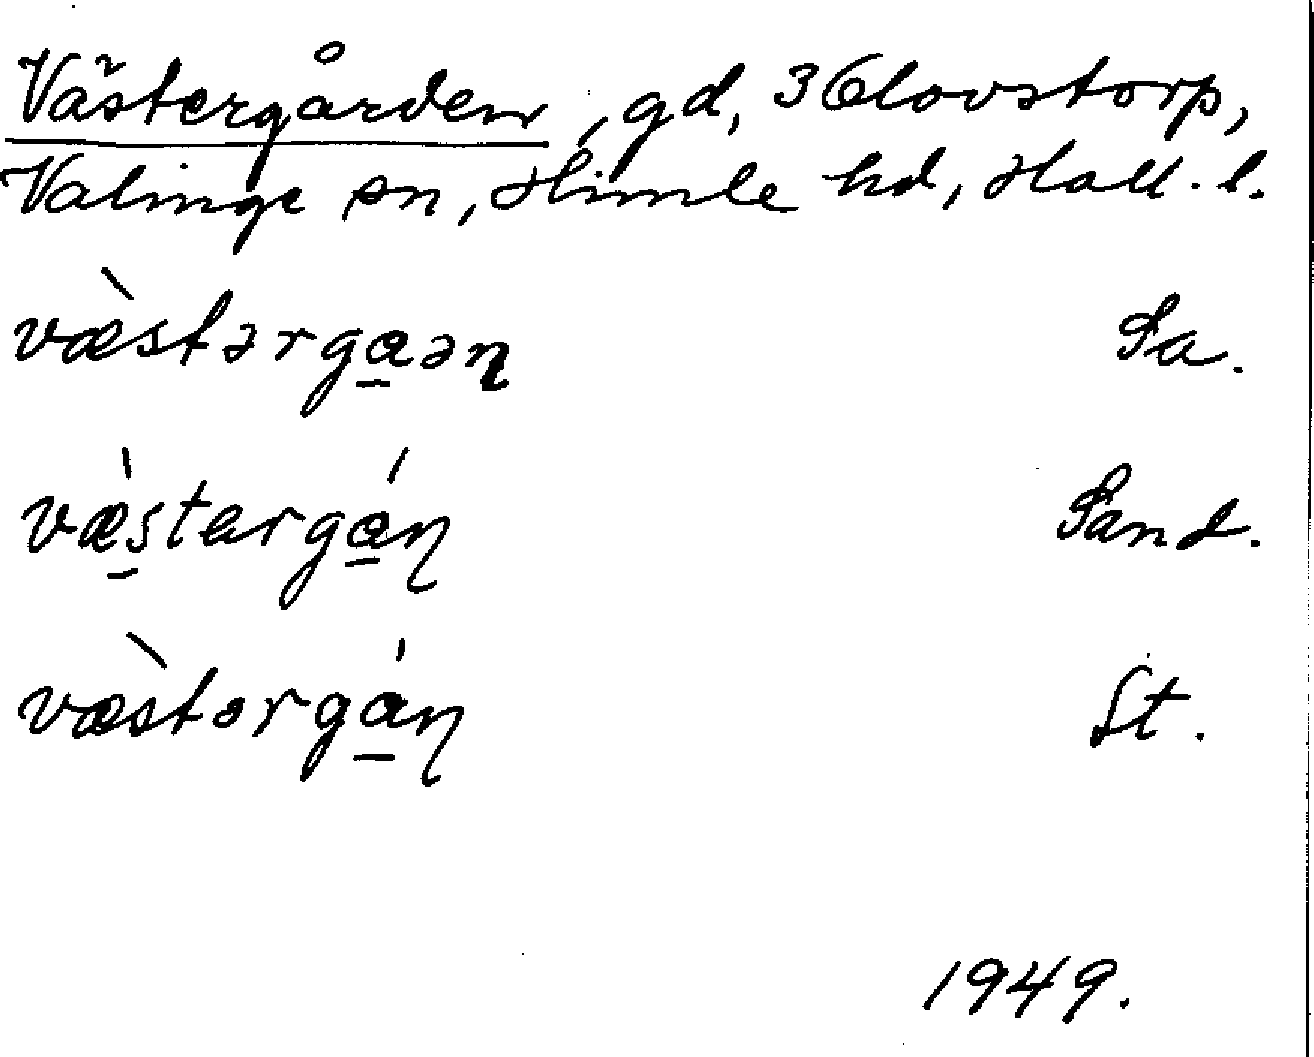 Västergården, gd, 3 Olovstorp,
Valinge sn, Himle hd, Hall. l.
væ̀stərga̲ən Sa.
væ̀stərgá̲ɳ Sand.
væ̀stərgá̲ɳ St.
1949.